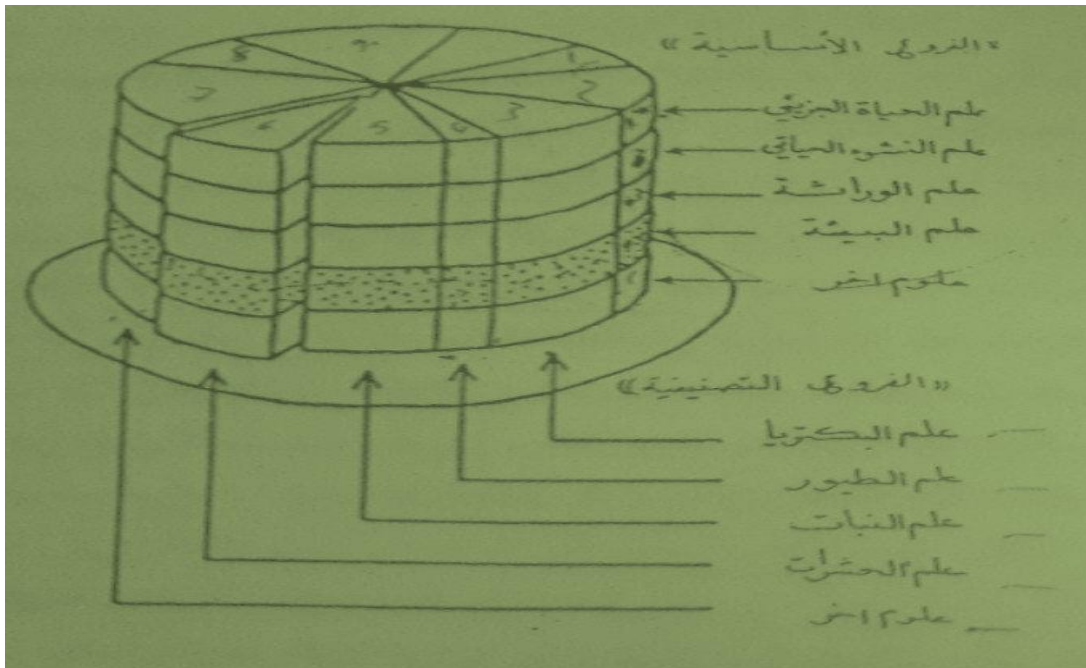 «الفروع الأساسية»
علم الحياة الجزيئي
علم النشوء الحياتي
علم الوراثة
علم البيئة
علوم اخر
8
7
6
5
4
3
2
1
«الفروع التصنيفية»
علم البكتريا
علم الطيور
علم النبات
علم الحشرات
علوم اخر